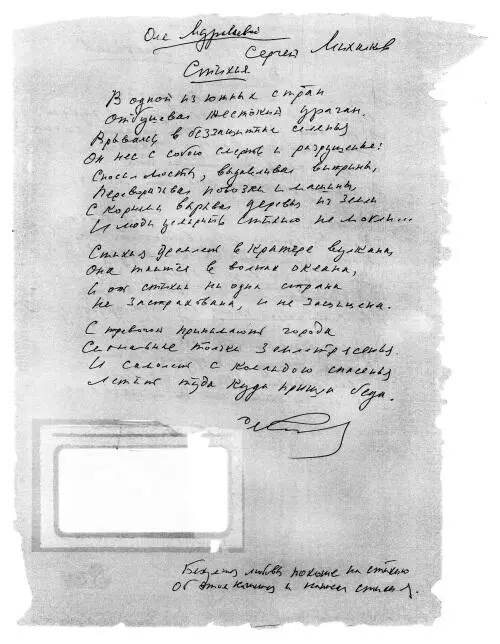 Оле Муравьевой
Сергей Михалков
Стихия
В одной из южных стран
Отбушевал жестокий ураган.
Врываясь в беззащитные селенья
Он нес с собою смерть и разрушенье:
Сносил мосты, выдавливал витрины,
Переворачивал повозки и машины,
С корнями вырывал деревья из земли
И люди усмирить стихию не могли...
Стихия дремлет в кратере вулкана,
Она таится в волнах океана,
И от стихии ни одна страна
Не застрахована, и не защищена.
С тревогой принимают города
Сигнальные толчки землетрясенья.
И самолет с командою спасенья
Летит туда куда пришла беда.
любовь похожа на стихию
Об этом и стихи.